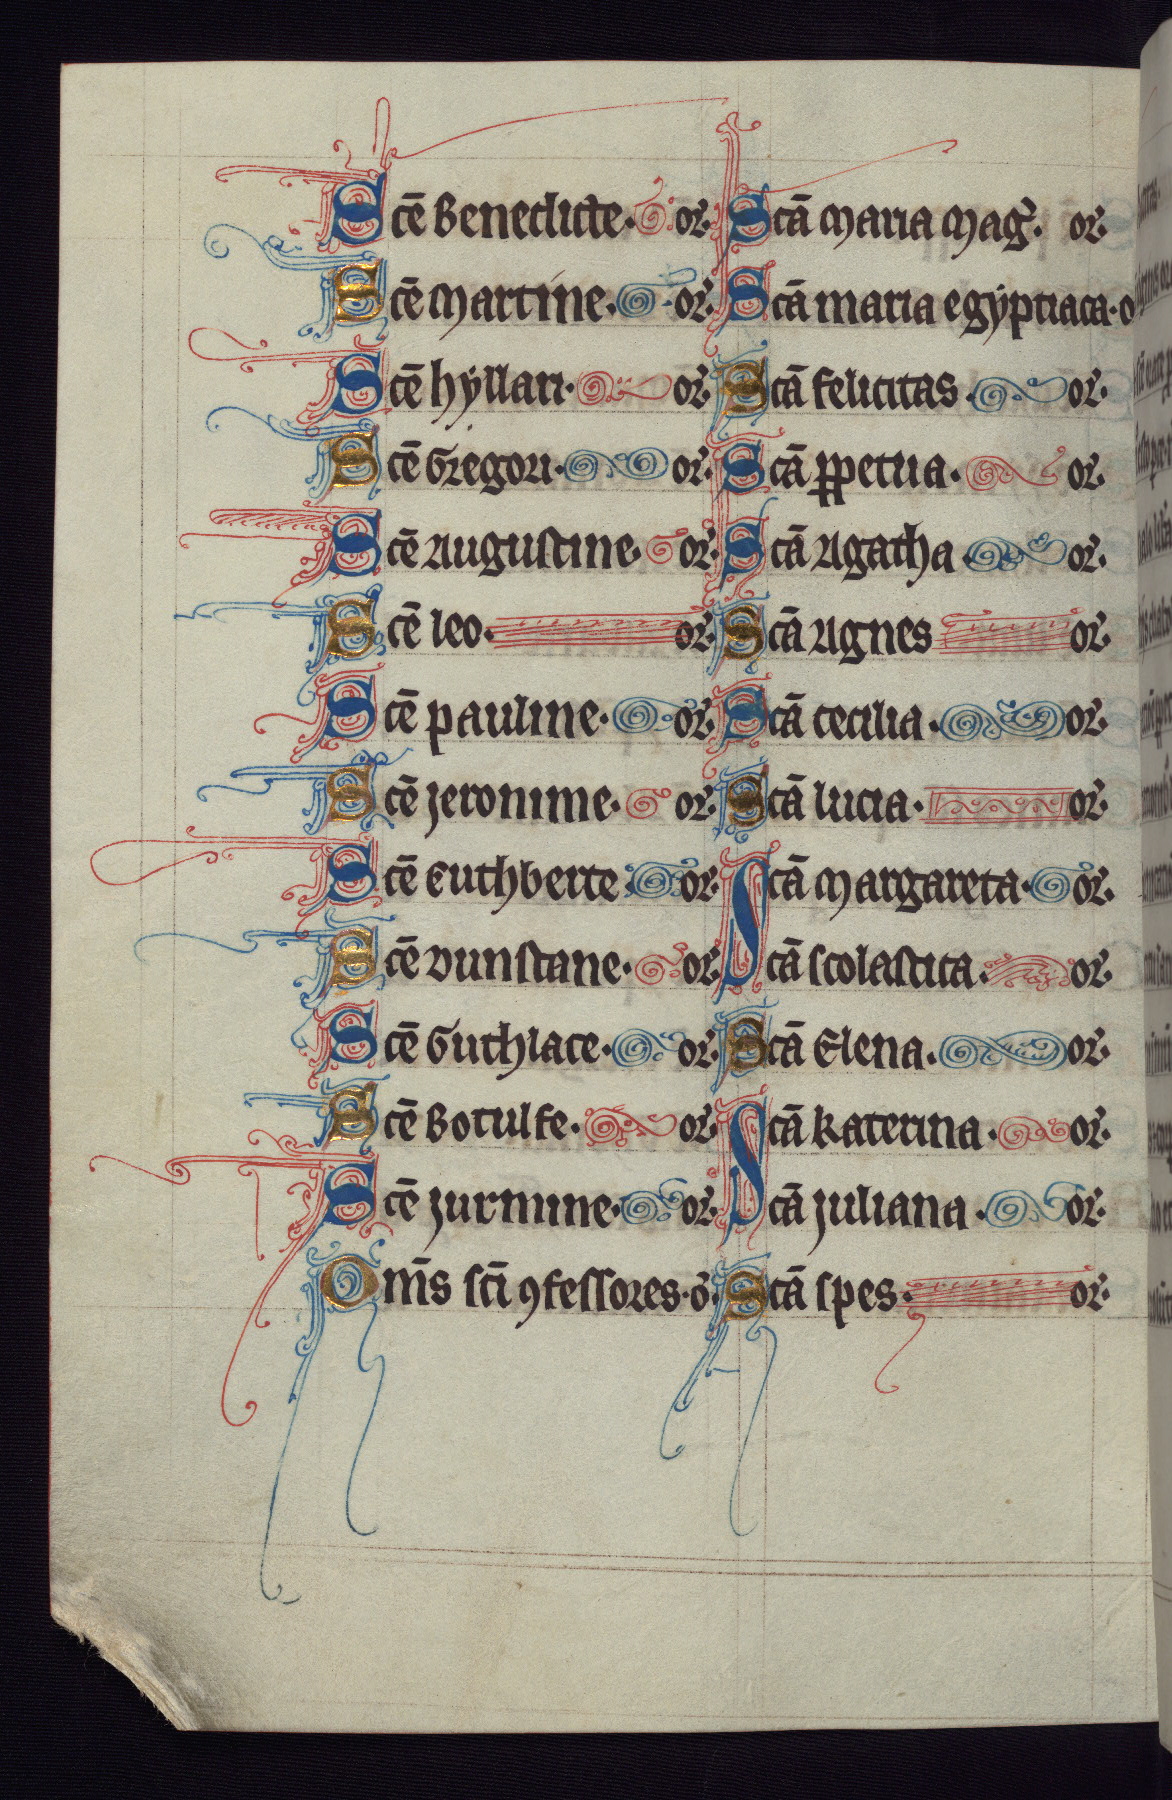 Scē Benedicte. or.
Scē Martine. or.
Scē hyllari. or.
Scē Gregori. or.
Scē Augustine. or.
Scē leo. or.
Scē pauline. or.
Scē Jeronime. or.
Scē Cuthberte. or.
Scē Dunstane. or.
Scē Guthlace. or.
Scē Botulfe. or.
Scē Jurmine. or.
Om̄s sc̄i ꝯfessores. ō.
Scā Maria Mag. or.
Scā maria egyptiaca. o
Scā felicitas. or.
Scā ꝑpetua. or.
Scā Agatha. or.
Scā Agnes or.
Scā cecilia. or.
Scā lucia. or.
Scā Margareta. or.
Scā scolastica. or.
Scā Elena. or.
Scā katerina. or.
Scā Juliana. or.
Scā spes. or.